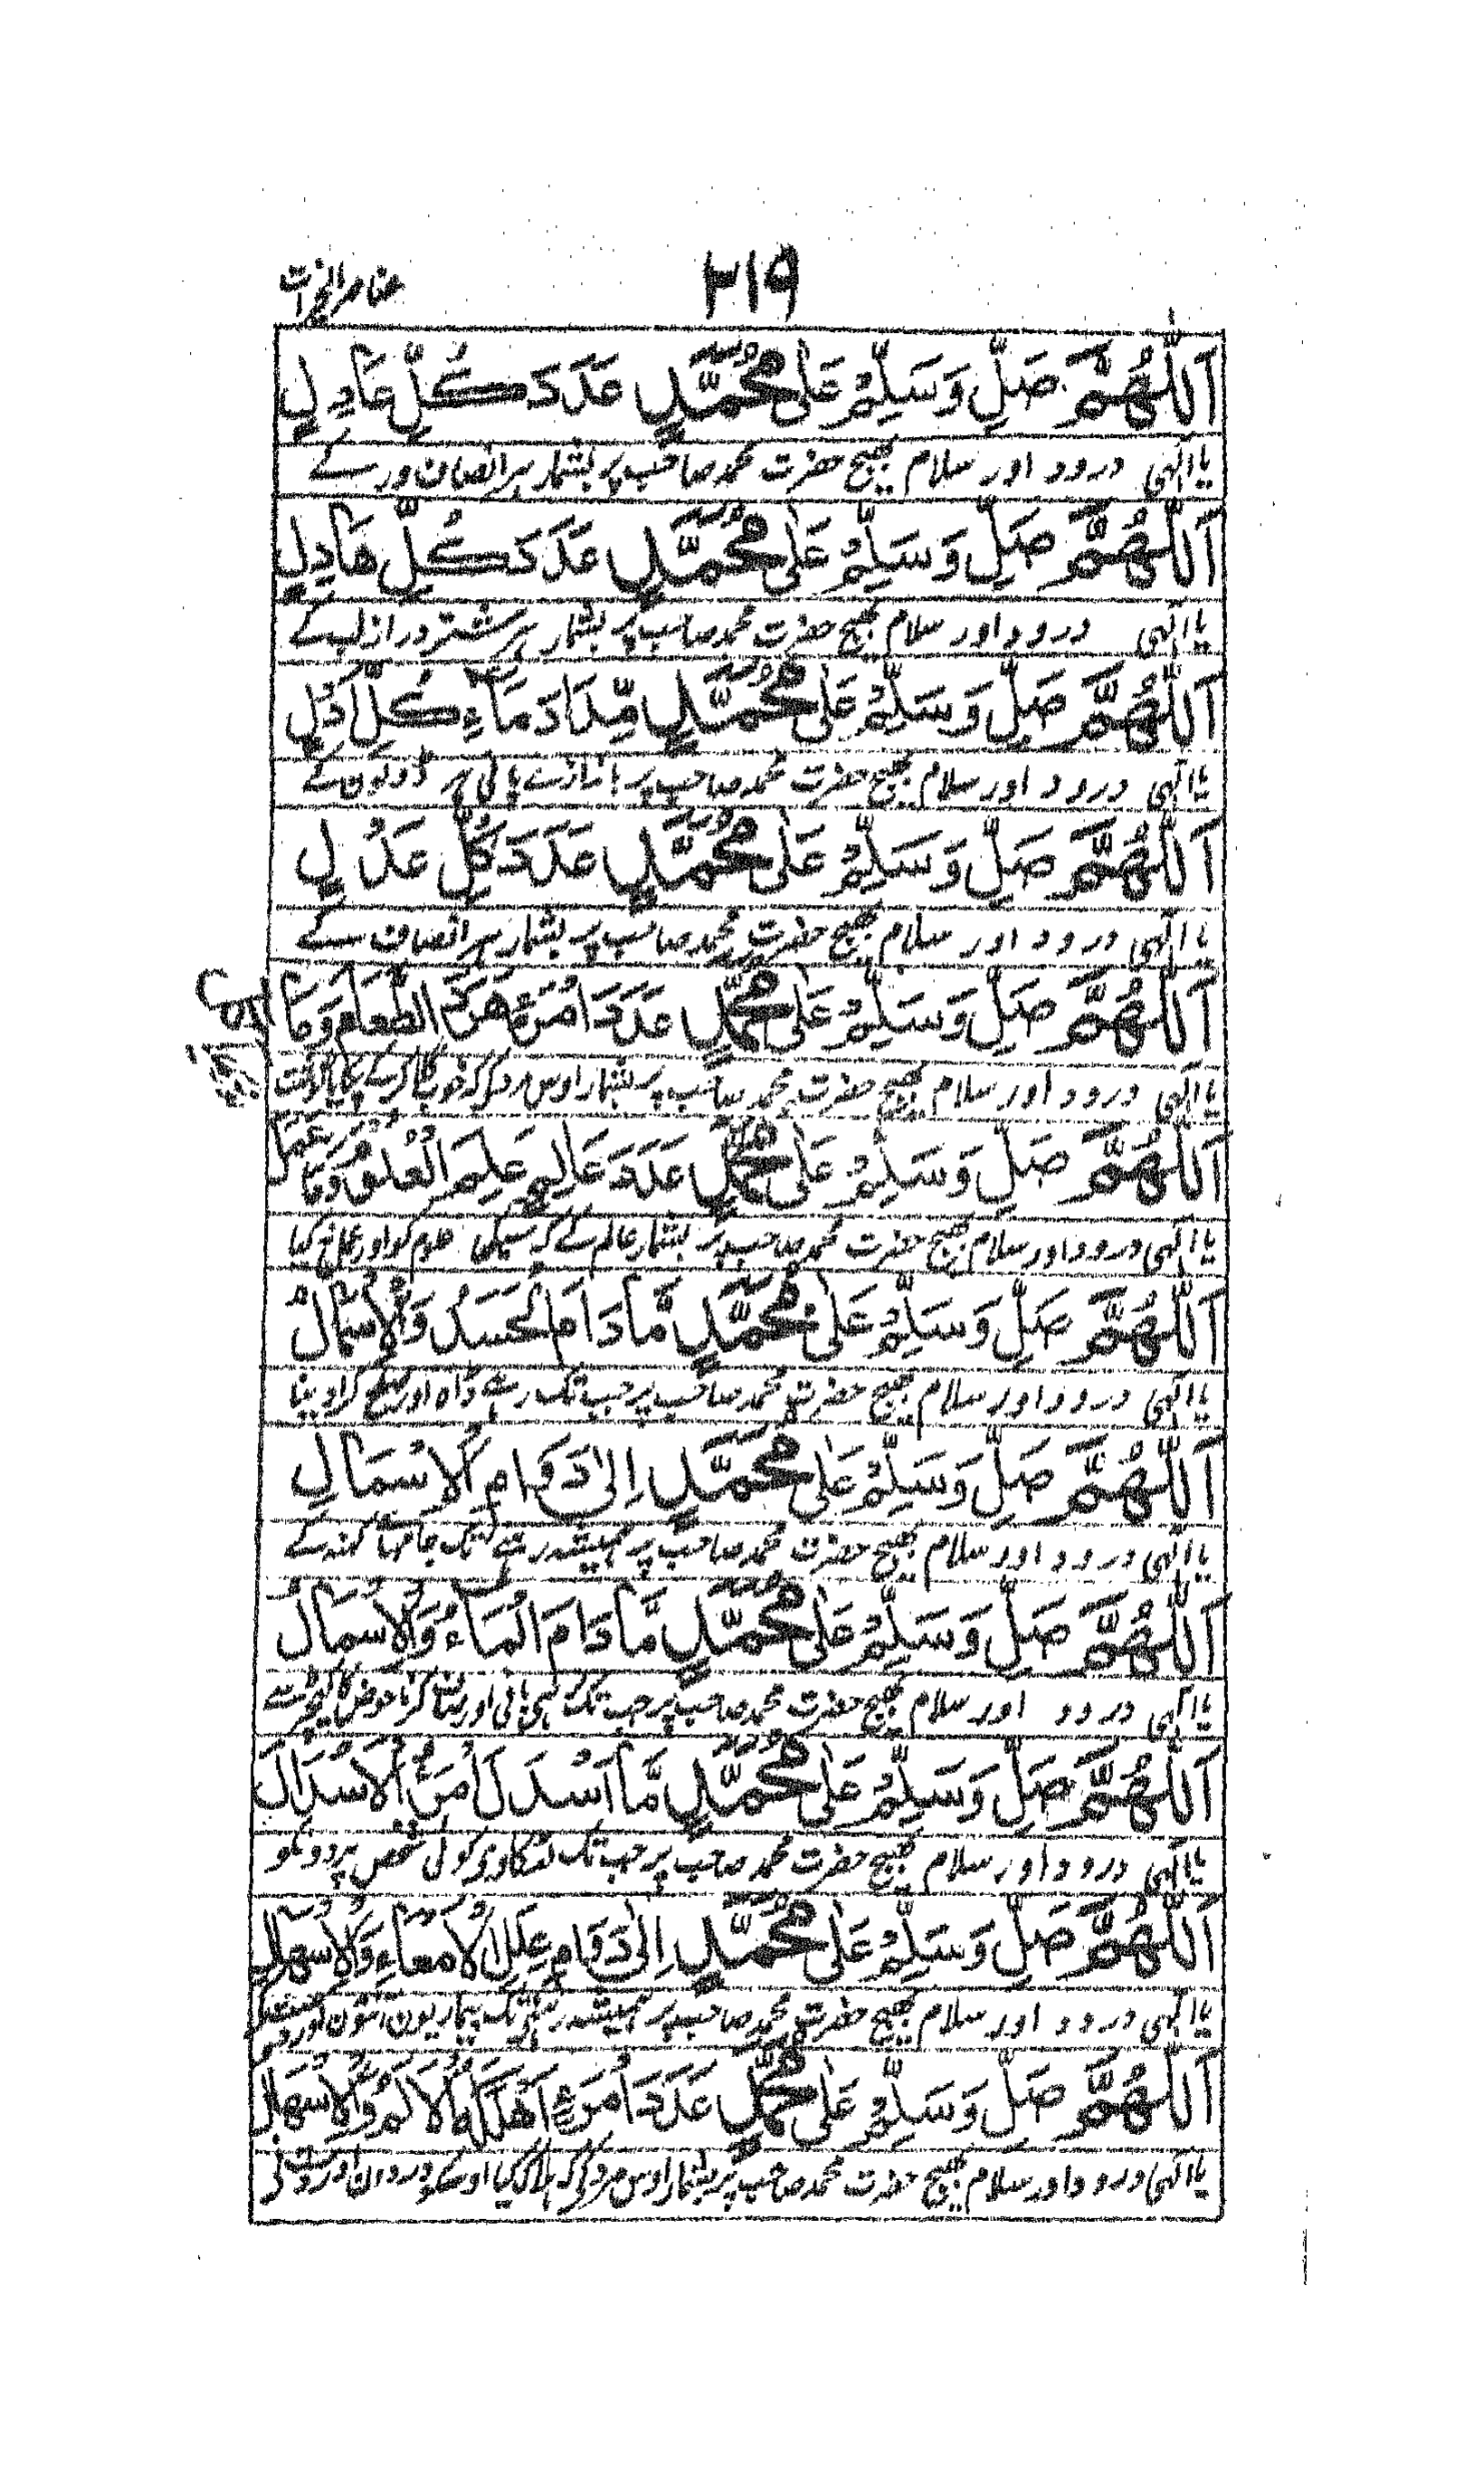 ۲۱۹
عناصر الخیرات
اَللّٰهُمَّ صَلِّ وَسَلِّمْ عَلٰى مُحَمَّدٍ عَدَدَ كُلِّ عَادِلٍ
یا الٰہی درود اور سلام بھیج حضرت محمد صاحب پر بشمار ہر انصاف ور کے
اَللّٰهُمَّ صَلِّ وَسَلِّمْ عَلٰى مُحَمَّدٍ عَدَدَ كُلِّ هَادِلٍ
یا الٰہی درود اور سلام بھیج حضرت محمد صاحب پر بشمار ہر شتر دراز لب کے
اَللّٰهُمَّ صَلِّ وَسَلِّمْ عَلٰى مُحَمَّدٍ مِّدَادَ مَاءِ كُلِّ اَدْلٍ
یا الٰہی درود اور سلام بھیج حضرت محمد صاحب پر پانی ڈولون کے
اَللّٰهُمَّ صَلِّ وَسَلِّمْ عَلٰى مُحَمَّدٍ عَدَدَ كُلِّ عَدْلٍ
یا الٰہی درود اور سلام بھیج حضرت محمد صاحب پر بشمار ہر انصاف کے
اَللّٰهُمَّ صَلِّ وَسَلِّمْ عَلٰى مُحَمَّدٍ عَدَدَ امْرَءٍ الطَّعَامَ وَمَا
یا الٰہی درود اور سلام بھیج حضرت محمد صاحب پر بشمار اوس مرد کے کہ خوب
اَللّٰهُمَّ صَلِّ وَسَلِّمْ عَلٰى مُحَمَّدٍ عَدَدَ عَالِمٍ عَلِمَ الْعُلُوْمَ وَمَا عَمِلَ
یا الٰہی درود اور سلام بھیج حضرت محمد صاحب پر بشمار عالم کے کہ سیکھی علوم کو اور عمل نہ کیا
اَللّٰهُمَّ صَلِّ وَسَلِّمْ عَلٰى مُحَمَّدٍ مَّا دَامَ الْحَسَدُ وَالْاِسْمَالُ
یا الٰہی درود اور سلام بھیج حضرت محمد صاحب پر جب تک رہے ڈاہ اور صلح کرا دینا
اَللّٰهُمَّ صَلِّ وَسَلِّمْ عَلٰى مُحَمَّدٍ اِلٰى دَوَامِ الْاَسْمَالِ
یا الٰہی درود اور سلام بھیج حضرت محمد صاحب پر ہمیشہ رہنے تک جامہا کہنہ کے
اَللّٰهُمَّ صَلِّ وَسَلِّمْ عَلٰى مُحَمَّدٍ مَّا دَامَ الْمَاءُ وَالْاِسْمَالُ
یا الٰہی درود اور سلام بھیج حضرت محمد صاحب پر جب تک رہی پانی اور کرنا حوض کا کیچڑ سے
اَللّٰهُمَّ صَلِّ وَسَلِّمْ عَلٰى مُحَمَّدٍ مَّا اَسْدَلَ امْرَءٌ الْاَسْدَالَ
یا الٰہی درود اور سلام بھیج حضرت محمد صاحب پر جب تک لٹکاوی کوئی شخص پردونکو
اَللّٰهُمَّ صَلِّ وَسَلِّمْ عَلٰى مُحَمَّدٍ اِلٰى دَوَامِ عِلَلِ الْاَمْعَاءِ وَالْاِسْهَالِ
یا الٰہی درود اور سلام بھیج حضرت محمد صاحب پر ہمیشہ رہنے تک بیماریون آنتون اور
اَللّٰهُمَّ صَلِّ وَسَلِّمْ عَلٰى مُحَمَّدٍ عَدَدَ امْرَءٍ اَهْلَكَهُ الْاَلَمُ وَالْاِسْهَالُ
یا الٰہی درود اور سلام بھیج حضرت محمد صاحب پر بشمار اوس مرد کے کہ ہلاک کیا اوسکو درد اور